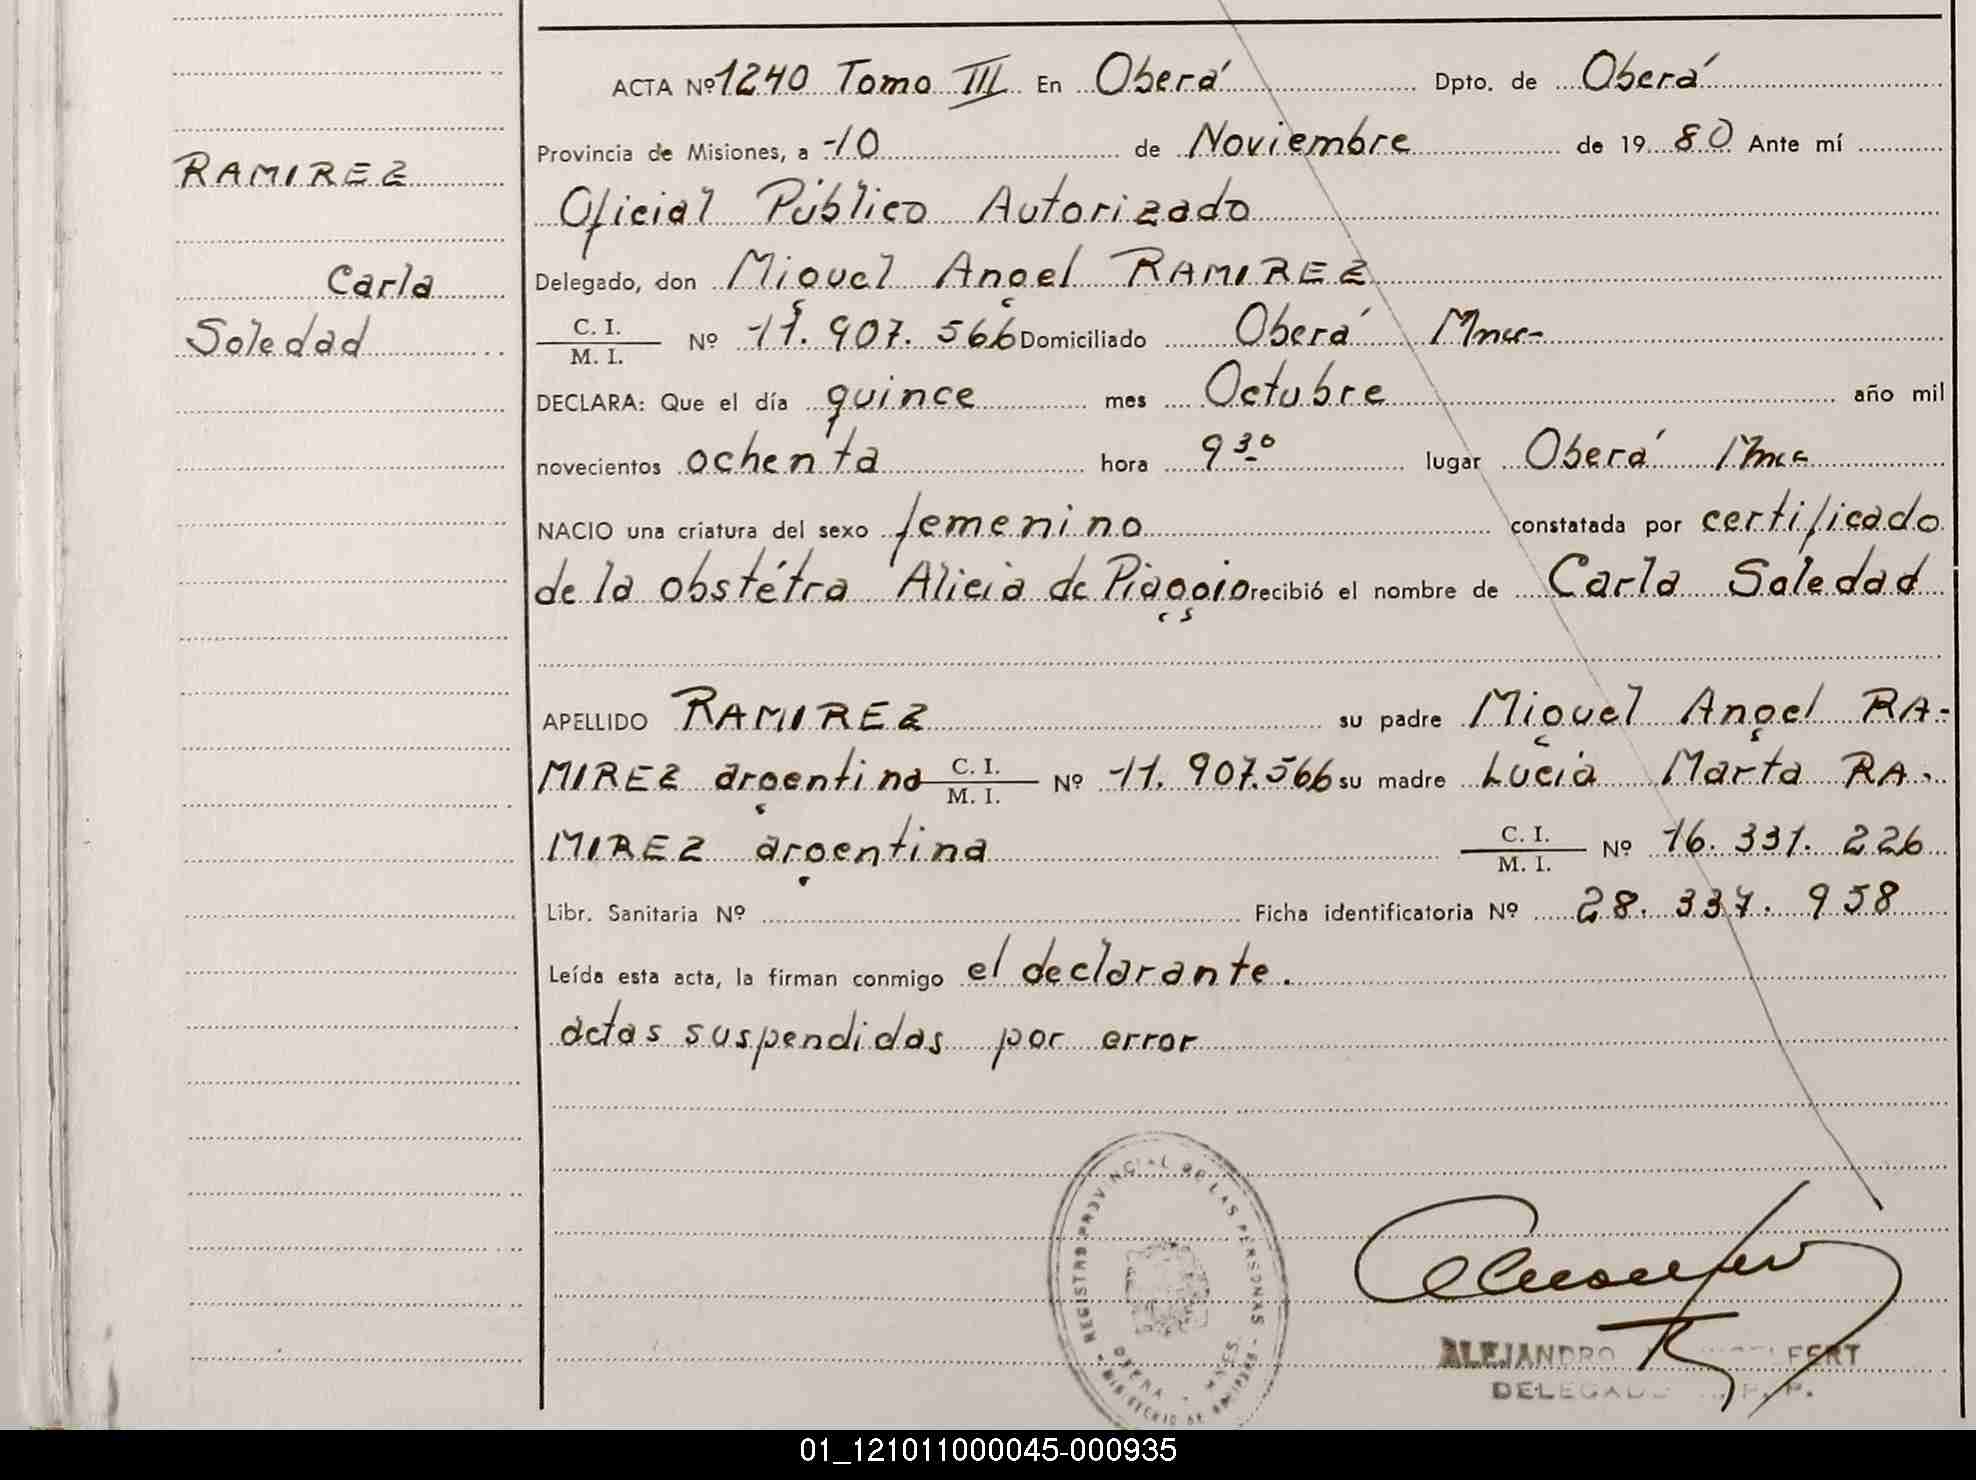 ACTA Nº 1240 Tomo III En Oberá Dpto. de Oberá
Provincia de Misiones, a 10 de Noviembre de 1980 Ante mí
Oficial Público Autorizado
Delegado, don Miguel Angel RAMIREZ
C. I.
M. I. Nº 11.907.566 Domiciliado Oberá Mnes
DECLARA: Que el día quince mes Octubre año mil
novecientos ochenta hora 9 30 lugar Oberá Mnes
NACIO una criatura del sexo femenino constatada por certificado
de la obstétra Alicia de Piaggio recibió el nombre de Carla Soledad
APELLIDO RAMIREZ su padre Miguel Angel RA-
MIREZ argentino C. I. M. I. Nº 11.907.566 su madre Lucia Marta RA-
MIREZ argentina C. I. M. I. Nº 16.331.226
Libr. Sanitaria Nº Ficha identificatoria Nº 28.337.958
Leída esta acta, la firman conmigo el declarante.
actas suspendidas por error
RAMIREZ
Carla
Soledad
REGISTRO PROVINCIAL DE LAS PERSONAS
OBERA - MNES.
ALEJANDRO
DELEGADO
01_121011000045-000935